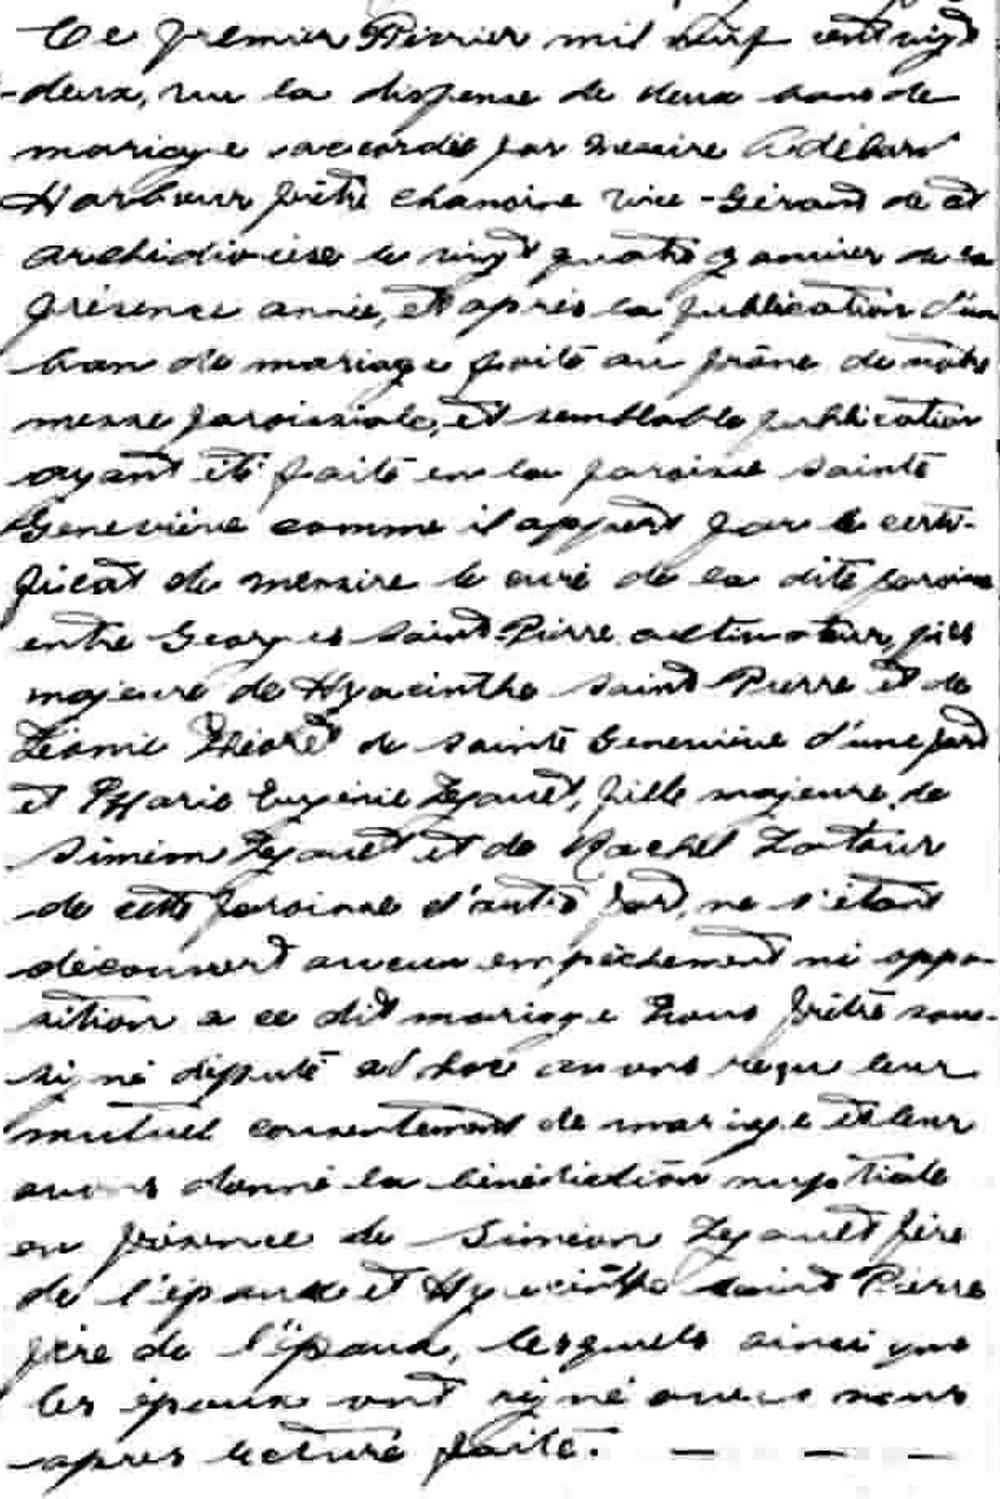 Ce premier Février mil neuf cent vingt
-deux, vu la dispense de deux bans de
mariage accordée par Messire Adélard
Harbour prêtre chanoine Vice-Gérant de cet
archidiocèse le vingt quatre Janvier de la
présence année, et après la publication d'un
ban de mariage faite au prône de notre
messe paroissiale, et semblable publication
ayant été faite en la paroisse sainte
Geneviève comme il appert par le certi-
ficat de messire le curé de la dite paroisse
entre Georges Saint-Pierre cultivateur, fils
majeure de Hyacinthe Saint-Pierre et de
Léonie Théoret de sainte Geneviève d'une part
et Marie Eugénie Legault, fille majeure, de
Siméon Legault et de Rachel Latour
de cette paroisse d'autre part, ne s'étant
découvert aucun empêchement ni oppo-
sition a ce dit mariage Nous prêtre sous-
signé député ad hoc avons reçu leur
mutuel consentement de mariage et leur
avons donné la bénédiction nuptiale
en présence de Siméon Legault père
de l'épouse et Hyacinthe saint Pierre
père de l'époux, lesquels ainsi que
les époux ont signé avec nous
apres lecture faite. — — —